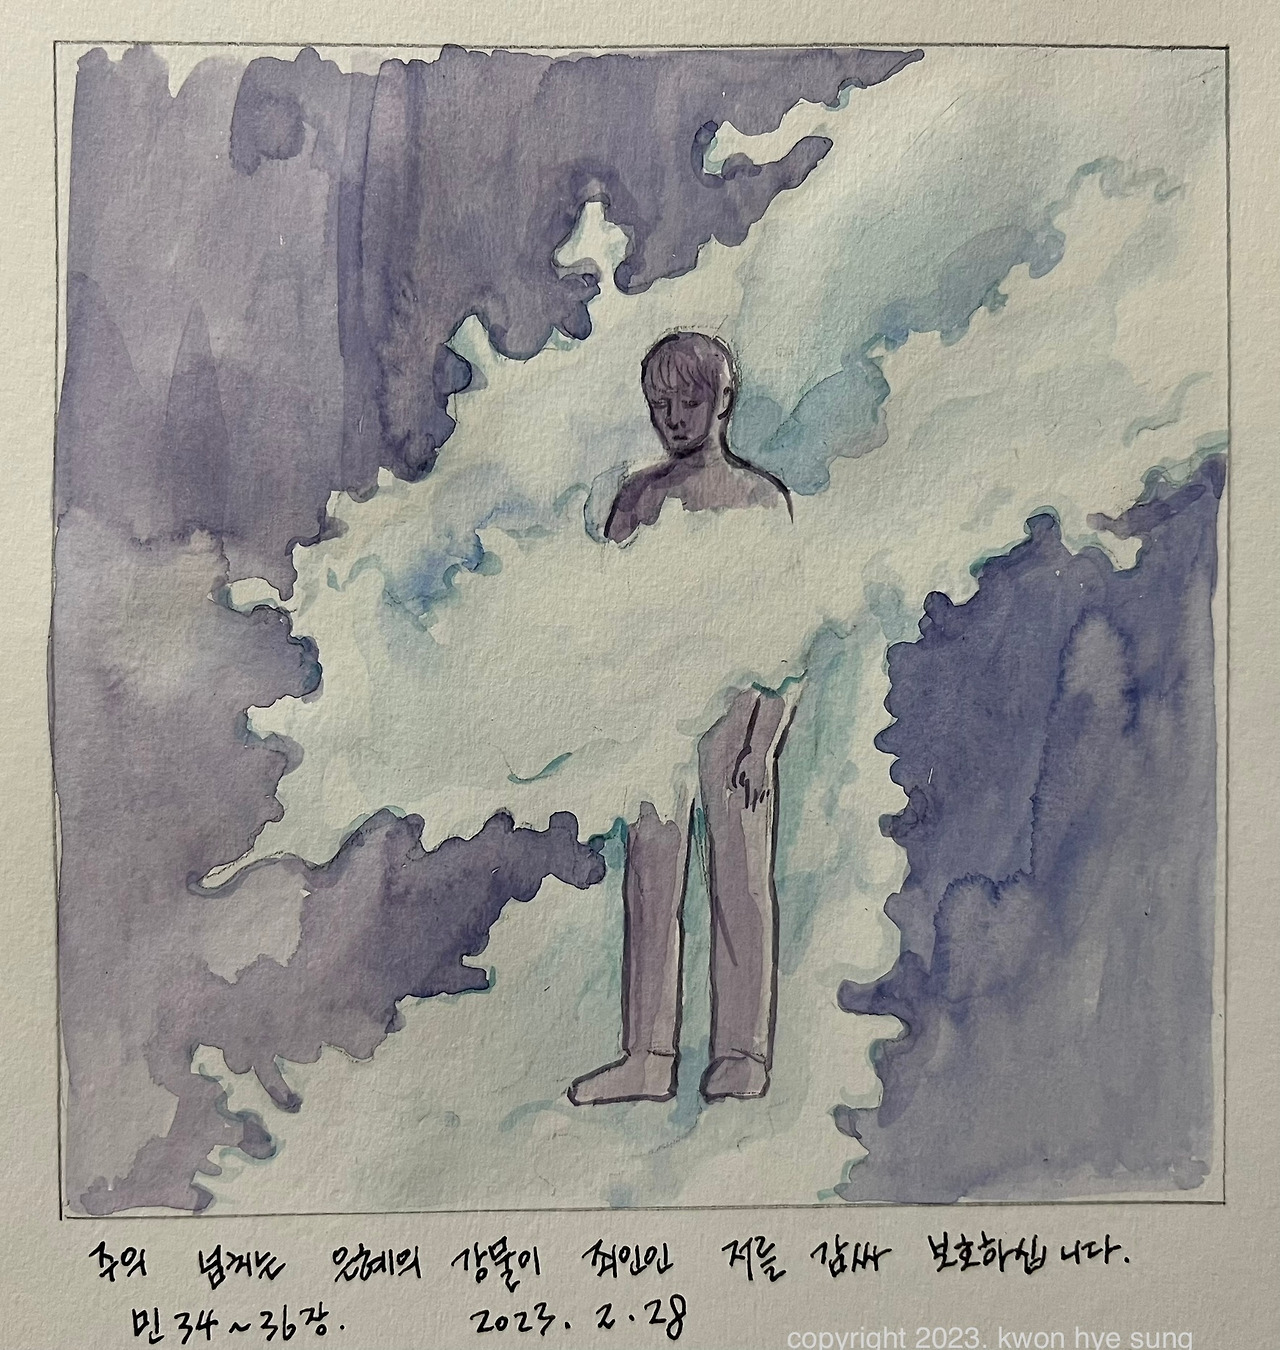 주의 넘치는 은혜의 강물이 죄인인 저를 감싸 보호하십니다.
민 34~36장. 2023. 2. 28
copyright 2023. kwon hye sung